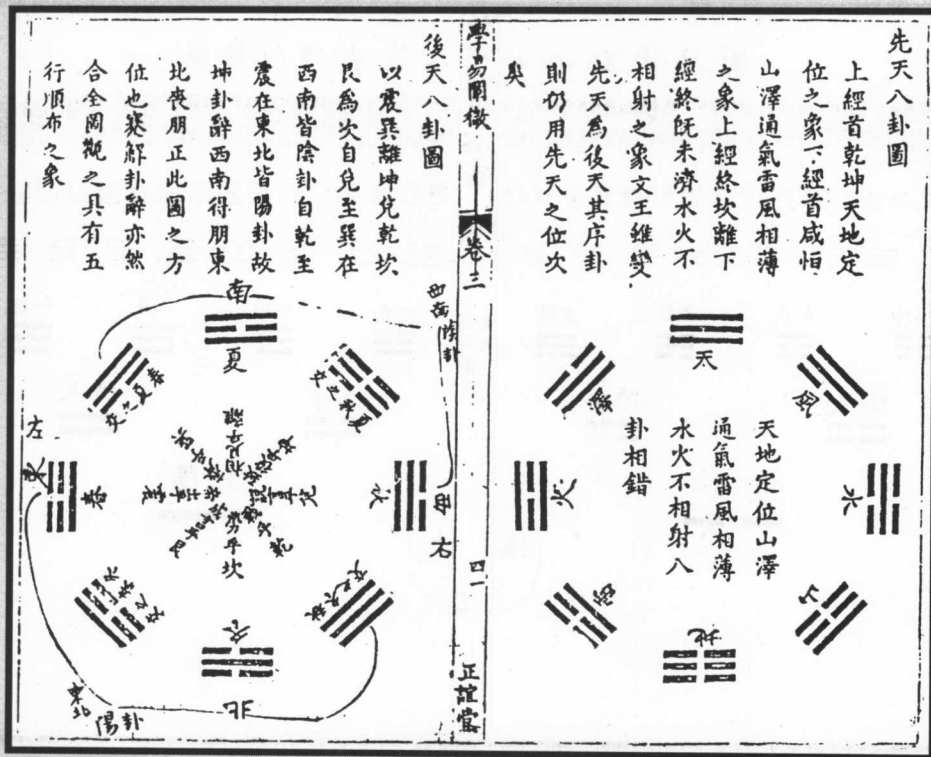 先天八卦圖
上經首乾坤天地定
位之象下經首咸恒
山澤通氣雷風相薄
之象上經終坎離下
經終旣未濟水火不
相射之象文王雖變
先天為後天其序卦
則仍用先天之位次
矣
天
風
水
山
地
雷
火
澤
天地定位山澤
通氣雷風相薄
水火不相射八
卦相錯
學易闡微
卷十二
四一
正誼堂
後天八卦圖
以震巽離坤兌乾坎
艮為次自兌至巽在
西南皆陰卦自乾至
震在東北皆陽卦故
坤卦辭西南得朋東
北喪朋正此圖之方
位也蹇解卦辭亦然
合全圖觀之具有五
行順布之象
南
夏
西南陰卦
秋
右
北
冬
東北
陽卦
左
東
春
春夏之交
相見乎離
勞乎坎
乾
兌